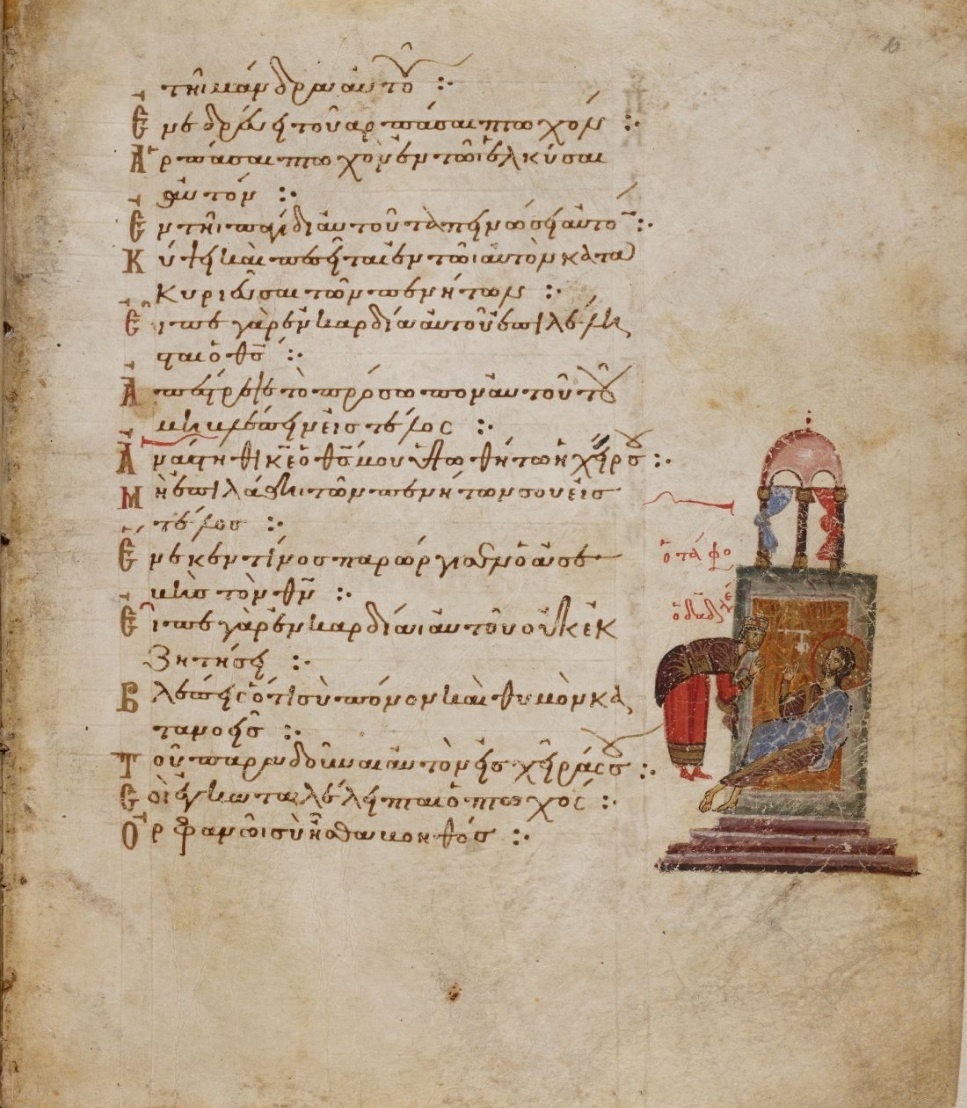 τῆι μάνδρα αὐτοῦ :·
Ἐνεδρεύει τοῦ ἁρπάσαι πτωχόν :·
Ἁρπάσαι πτωχὸν ἐν τῶι ἑλκύσαι
αὐτόν :·
Ἐν τῆι παγίδι αὐτοῦ ταπεινώσει αὐτό̅ :·
Κύψει καὶ πεσεῖται ἐν τῶι αὐτὸν κατα
κυριεῦσαι τῶν πενήτων :·
Εἶπε γὰρ ἐν καρδία αὐτοῦ ἐπιλέλη
σται ὁ θ̅ς̅ :·
Ἀπέστρεψε τὸ πρόσωπον αὐτοῦ τοῦ
μὴ βλέπειν εἰς τέλος :·
Ἀνάστηθι κ̅ε̅ ὁ θ̅ς̅ μου ὑψωθήτω ἡ χείρ σου :·
Μὴ ἐπιλάθηι τῶν πενήτων σου εἰς
τέλος :·
Ἕνεκεν τίνος παρώργισεν ὁ ἀσε
βὴς τὸν θ̅ν̅ :·
Εἶπε γὰρ ἐν καρδίαι αὐτοῦ οὐκ ἐκ
ζητήσει :·
Βλέπεις ὅτι σὺ πόνον καὶ θυμὸν κα
τανοεῖς :·
Τοῦ παραδοῦναι αὐτὸν εἰς χεῖράς σου :·
Σοὶ ἐγκαταλέλειπται ὁ πτωχός :·
Ὀρφανῶι σὺ ἦσθα βοηθός :·
ὁ τάφο
ὁ δ̅α̅δ̅